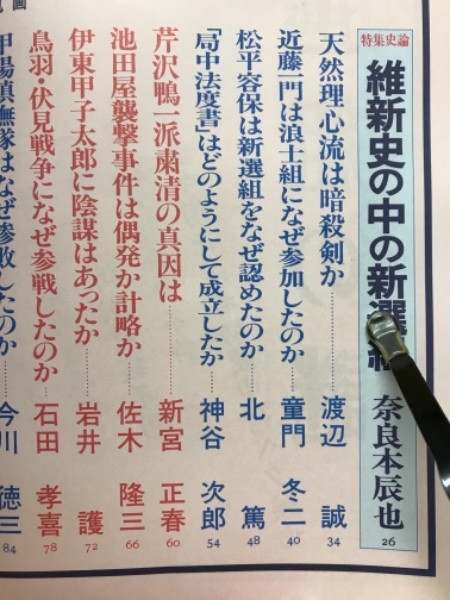 特集史論
維新史の中の新選組 奈良本辰也 26
天然理心流は暗殺剣か………… 渡辺 誠 34
近藤一門は浪士組になぜ参加したのか…… 童門 冬二 40
松平容保は新選組をなぜ認めたのか…… 北 篤 48
「局中法度書」はどのようにして成立したか…… 神谷 次郎 54
芹沢鴨一派粛清の真因は………… 新宮 正春 60
池田屋襲撃事件は偶発か計略か…… 佐木 隆三 66
伊東甲子太郎に陰謀はあったか………… 岩井 護 72
鳥羽・伏見戦争になぜ参戦したのか… 石田 孝喜 78
甲陽鎮撫隊はなぜ惨敗したのか…… 今川 徳三 84